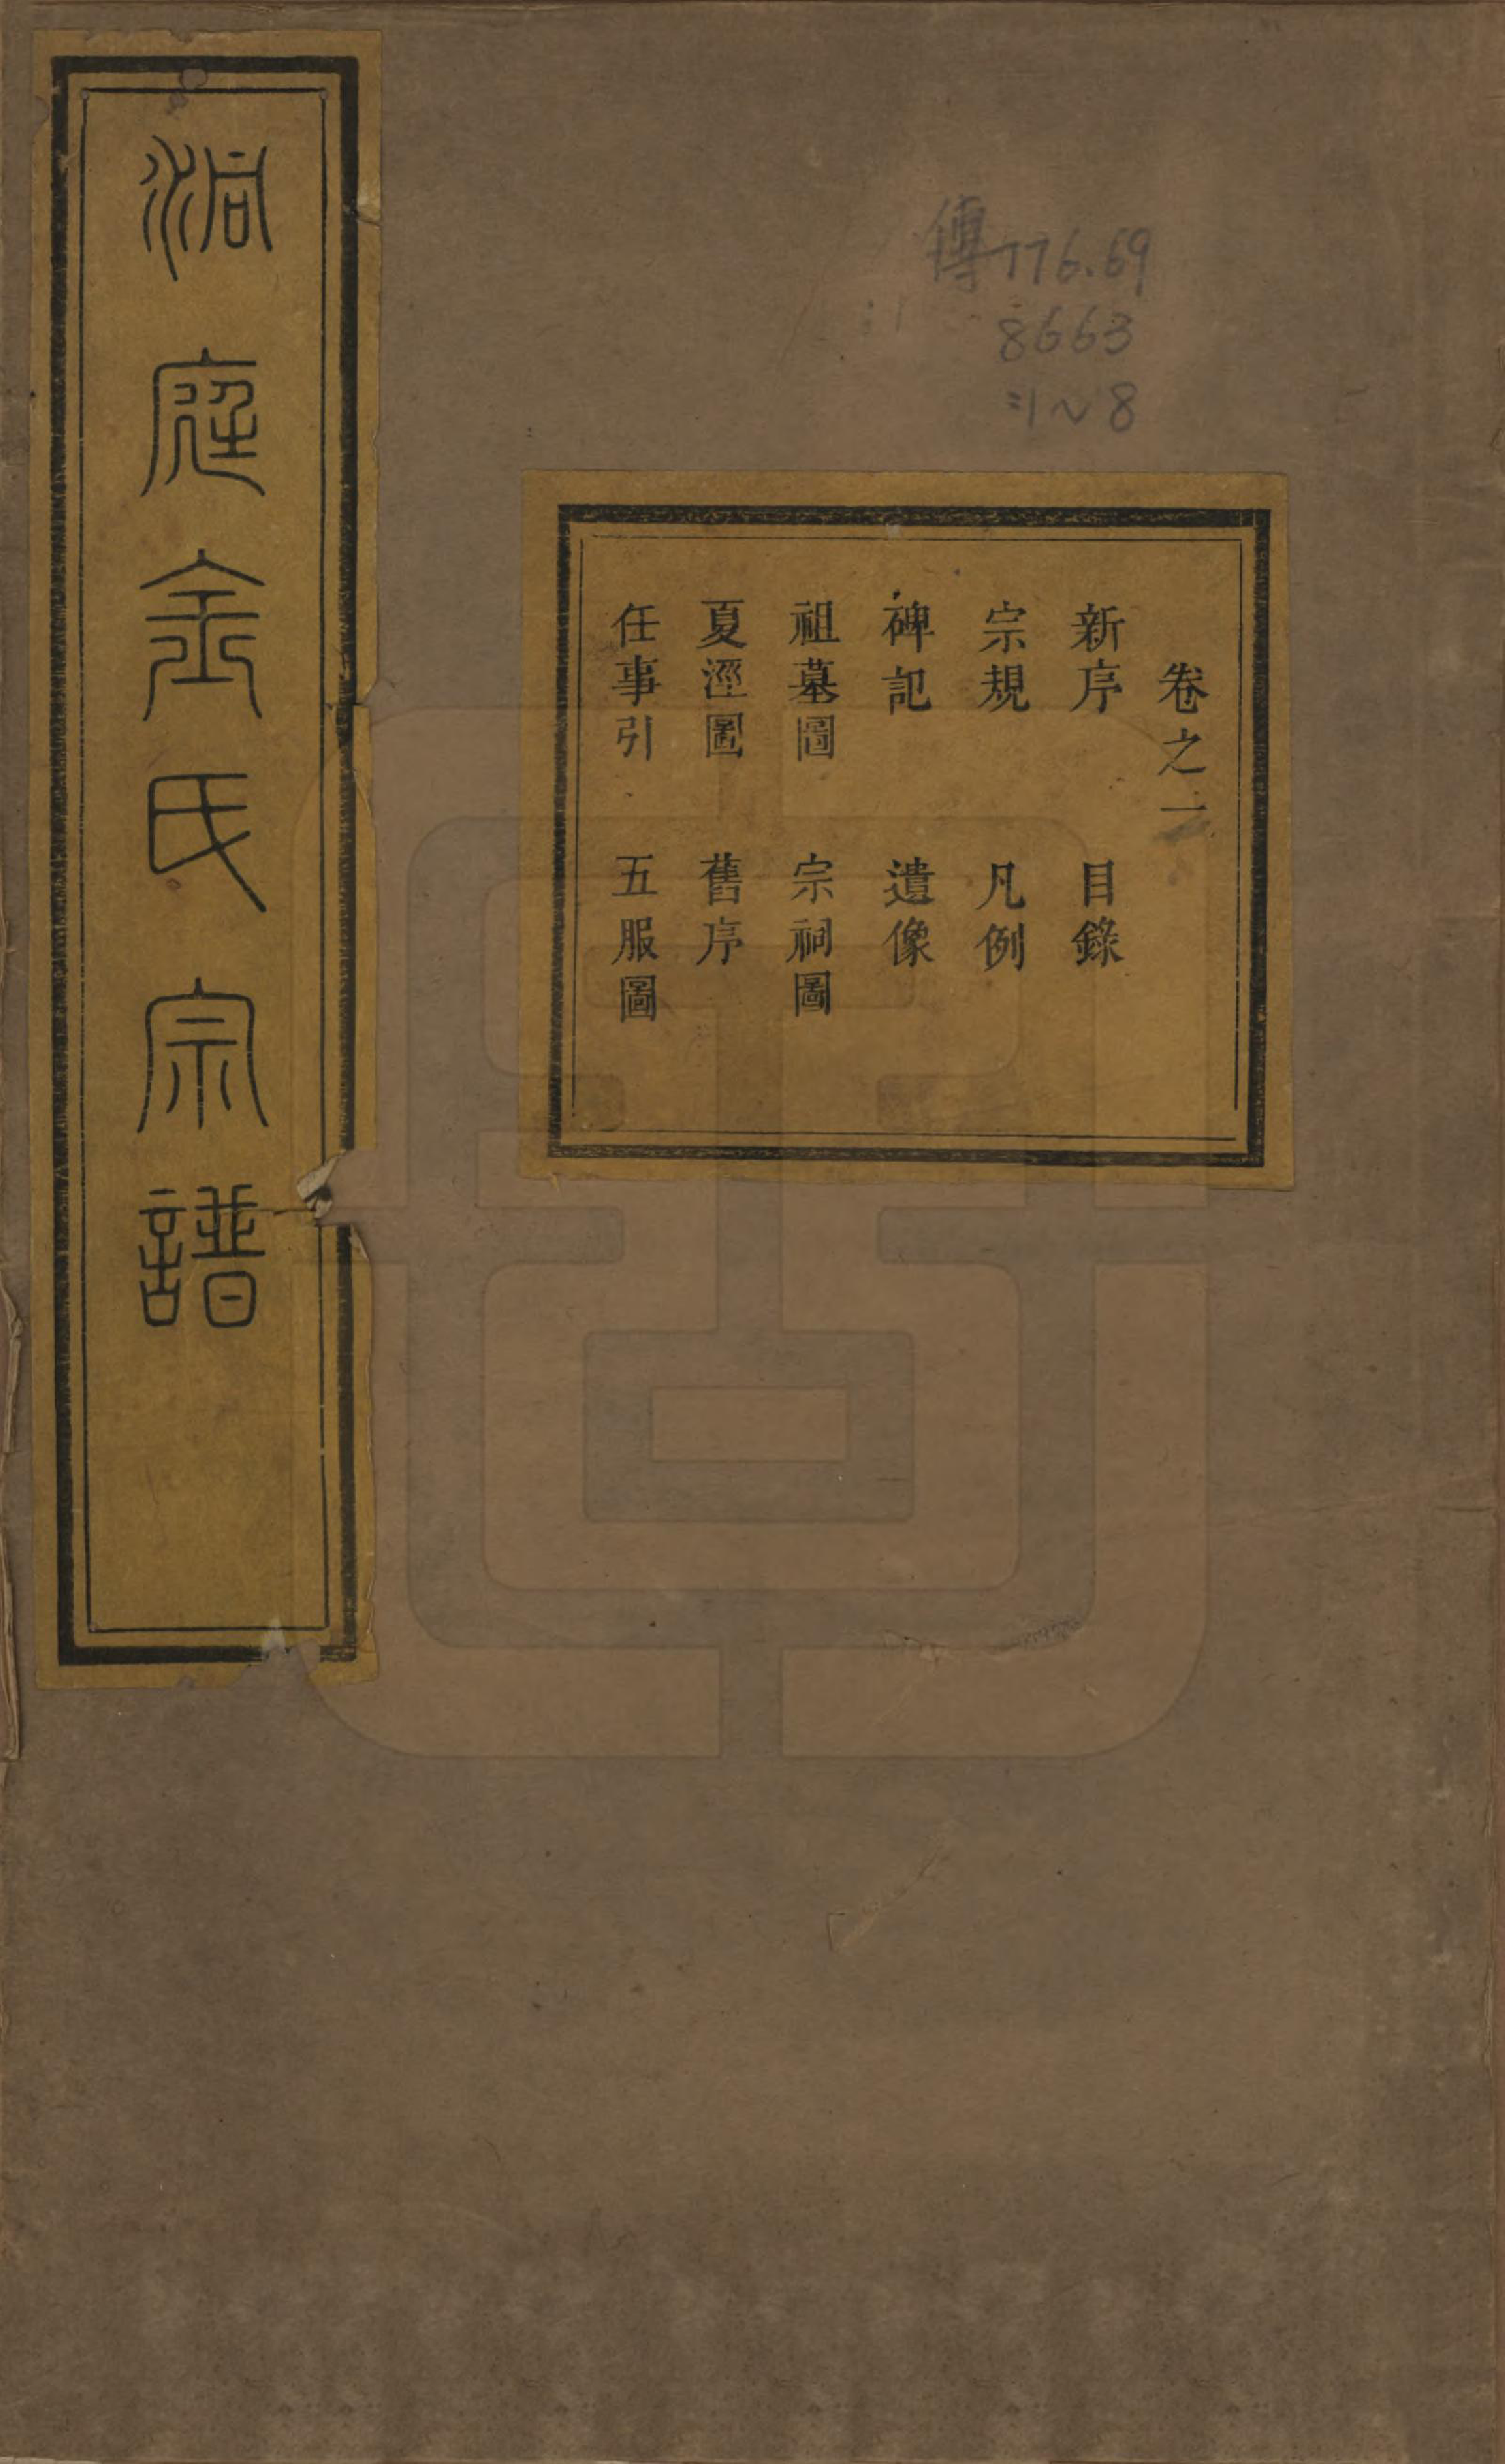 洞庭金氏宗譜
傳776.69
8663
:1~8
卷之一
新序 目錄
宗規 凡例
碑記 遺像
祖墓圖 宗祠圖
夏涇圖 舊序
任事引 五服圖